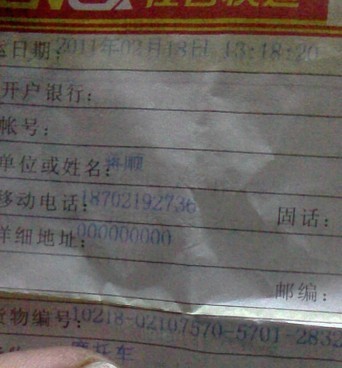 日期:2011年02月18日 13:18:20
开户银行:
帐号:
单位或姓名:
移动电话:18702192736
固话:
详细地址:000000000
邮编:
货物编号:10218-02107570-5701-2832
摩托车